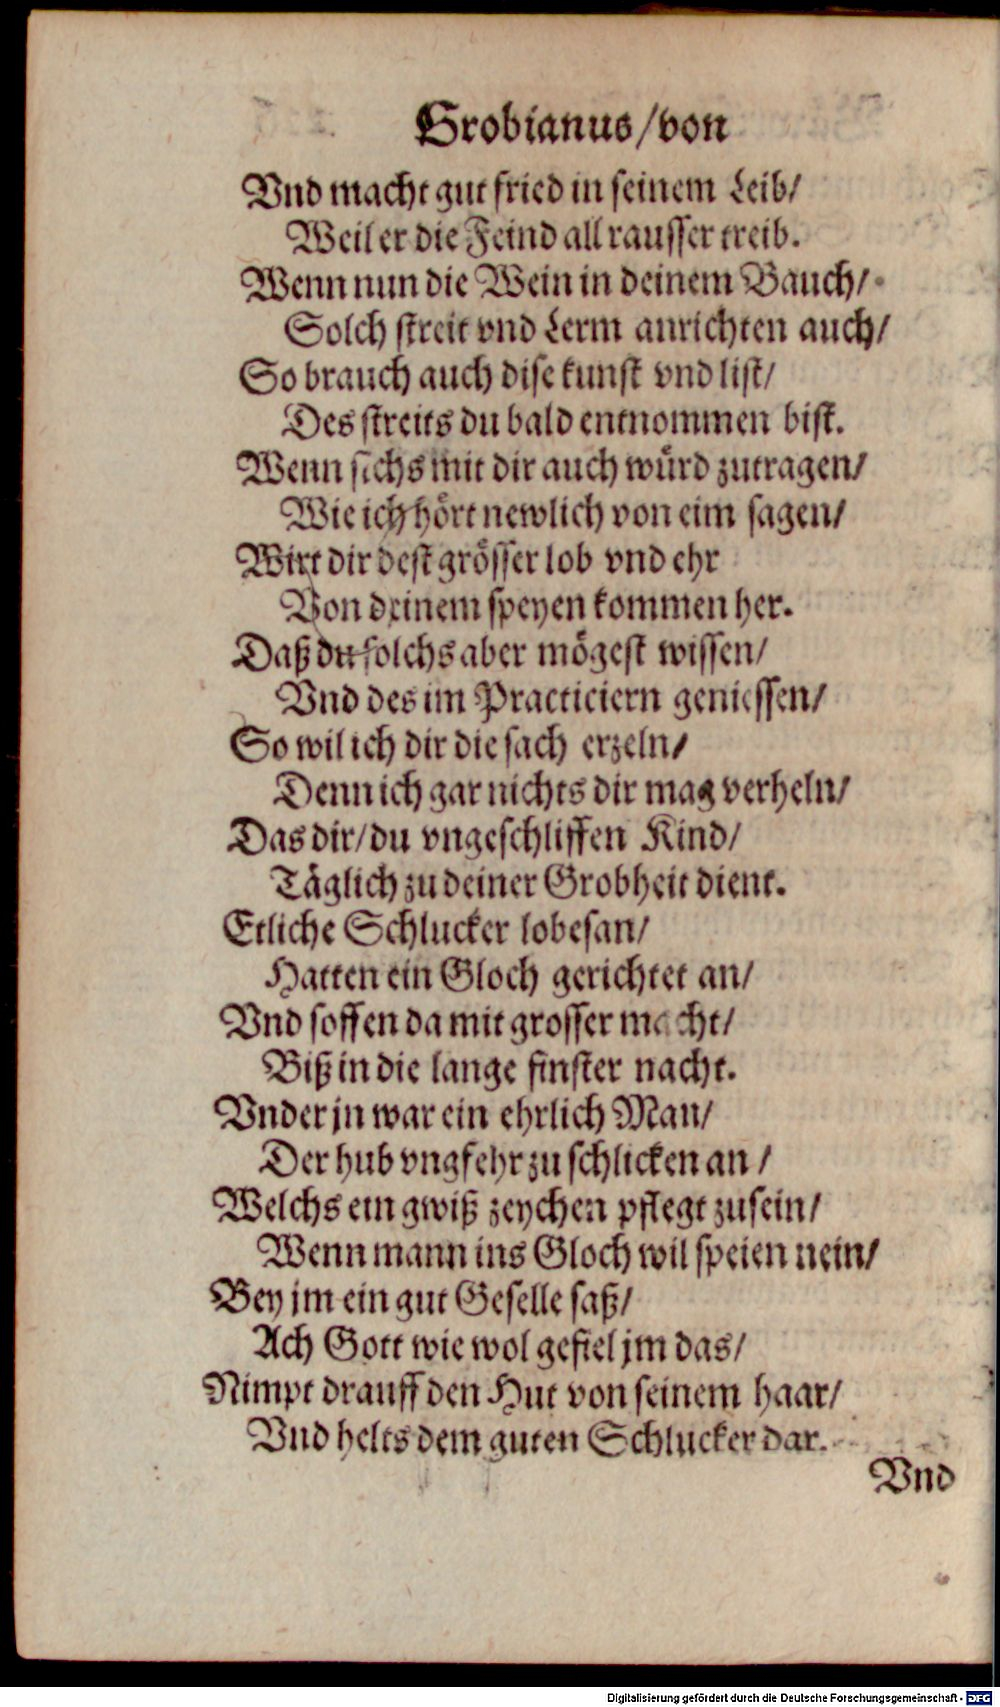 Grobianus/von
Vnd macht gut fried in seinem Leib/
Weil er die Feind all rausser treib.
Wenn nun die Wein in deinem Bauch/
Solch streit vnd Lerm anrichten auch/
So brauch auch dise kunst vnd list/
Des streits du bald entnommen bist.
Wenn sichs mit dir auch wuͤrd zutragen/
Wie ich hoͤrt newlich von eim sagen/
Wirt dir dest groͤsser lob vnd ehr
Von deinem speyen kommen her.
Daß du solchs aber moͤgest wissen/
Vnd des im Practiciern geniessen/
So wil ich dir die sach erzeln/
Denn ich gar nichts dir mag verheln/
Das dir/du vngeschliffen Kind/
Taͤglich zu deiner Grobheit dient.
Etliche Schlucker lobesan/
Hatten ein Gloch gerichtet an/
Vnd soffen da mit grosser macht/
Biß in die lange finster nacht.
Vnder jn war ein ehrlich Man/
Der hub vngfehr zu schlicken an/
Welchs ein gwiß zeychen pflegt zusein/
Wenn mann ins Gloch wil speien nein/
Bey jm ein gut Geselle saß/
Ach Gott wie wol gefiel jm das/
Nimpt drauff den Hut von seinem haar/
Vnd helts dem guten Schlucker dar.
Vnd
Digitalisierung gefördert durch die Deutsche Forschungsgemeinschaft - DFG